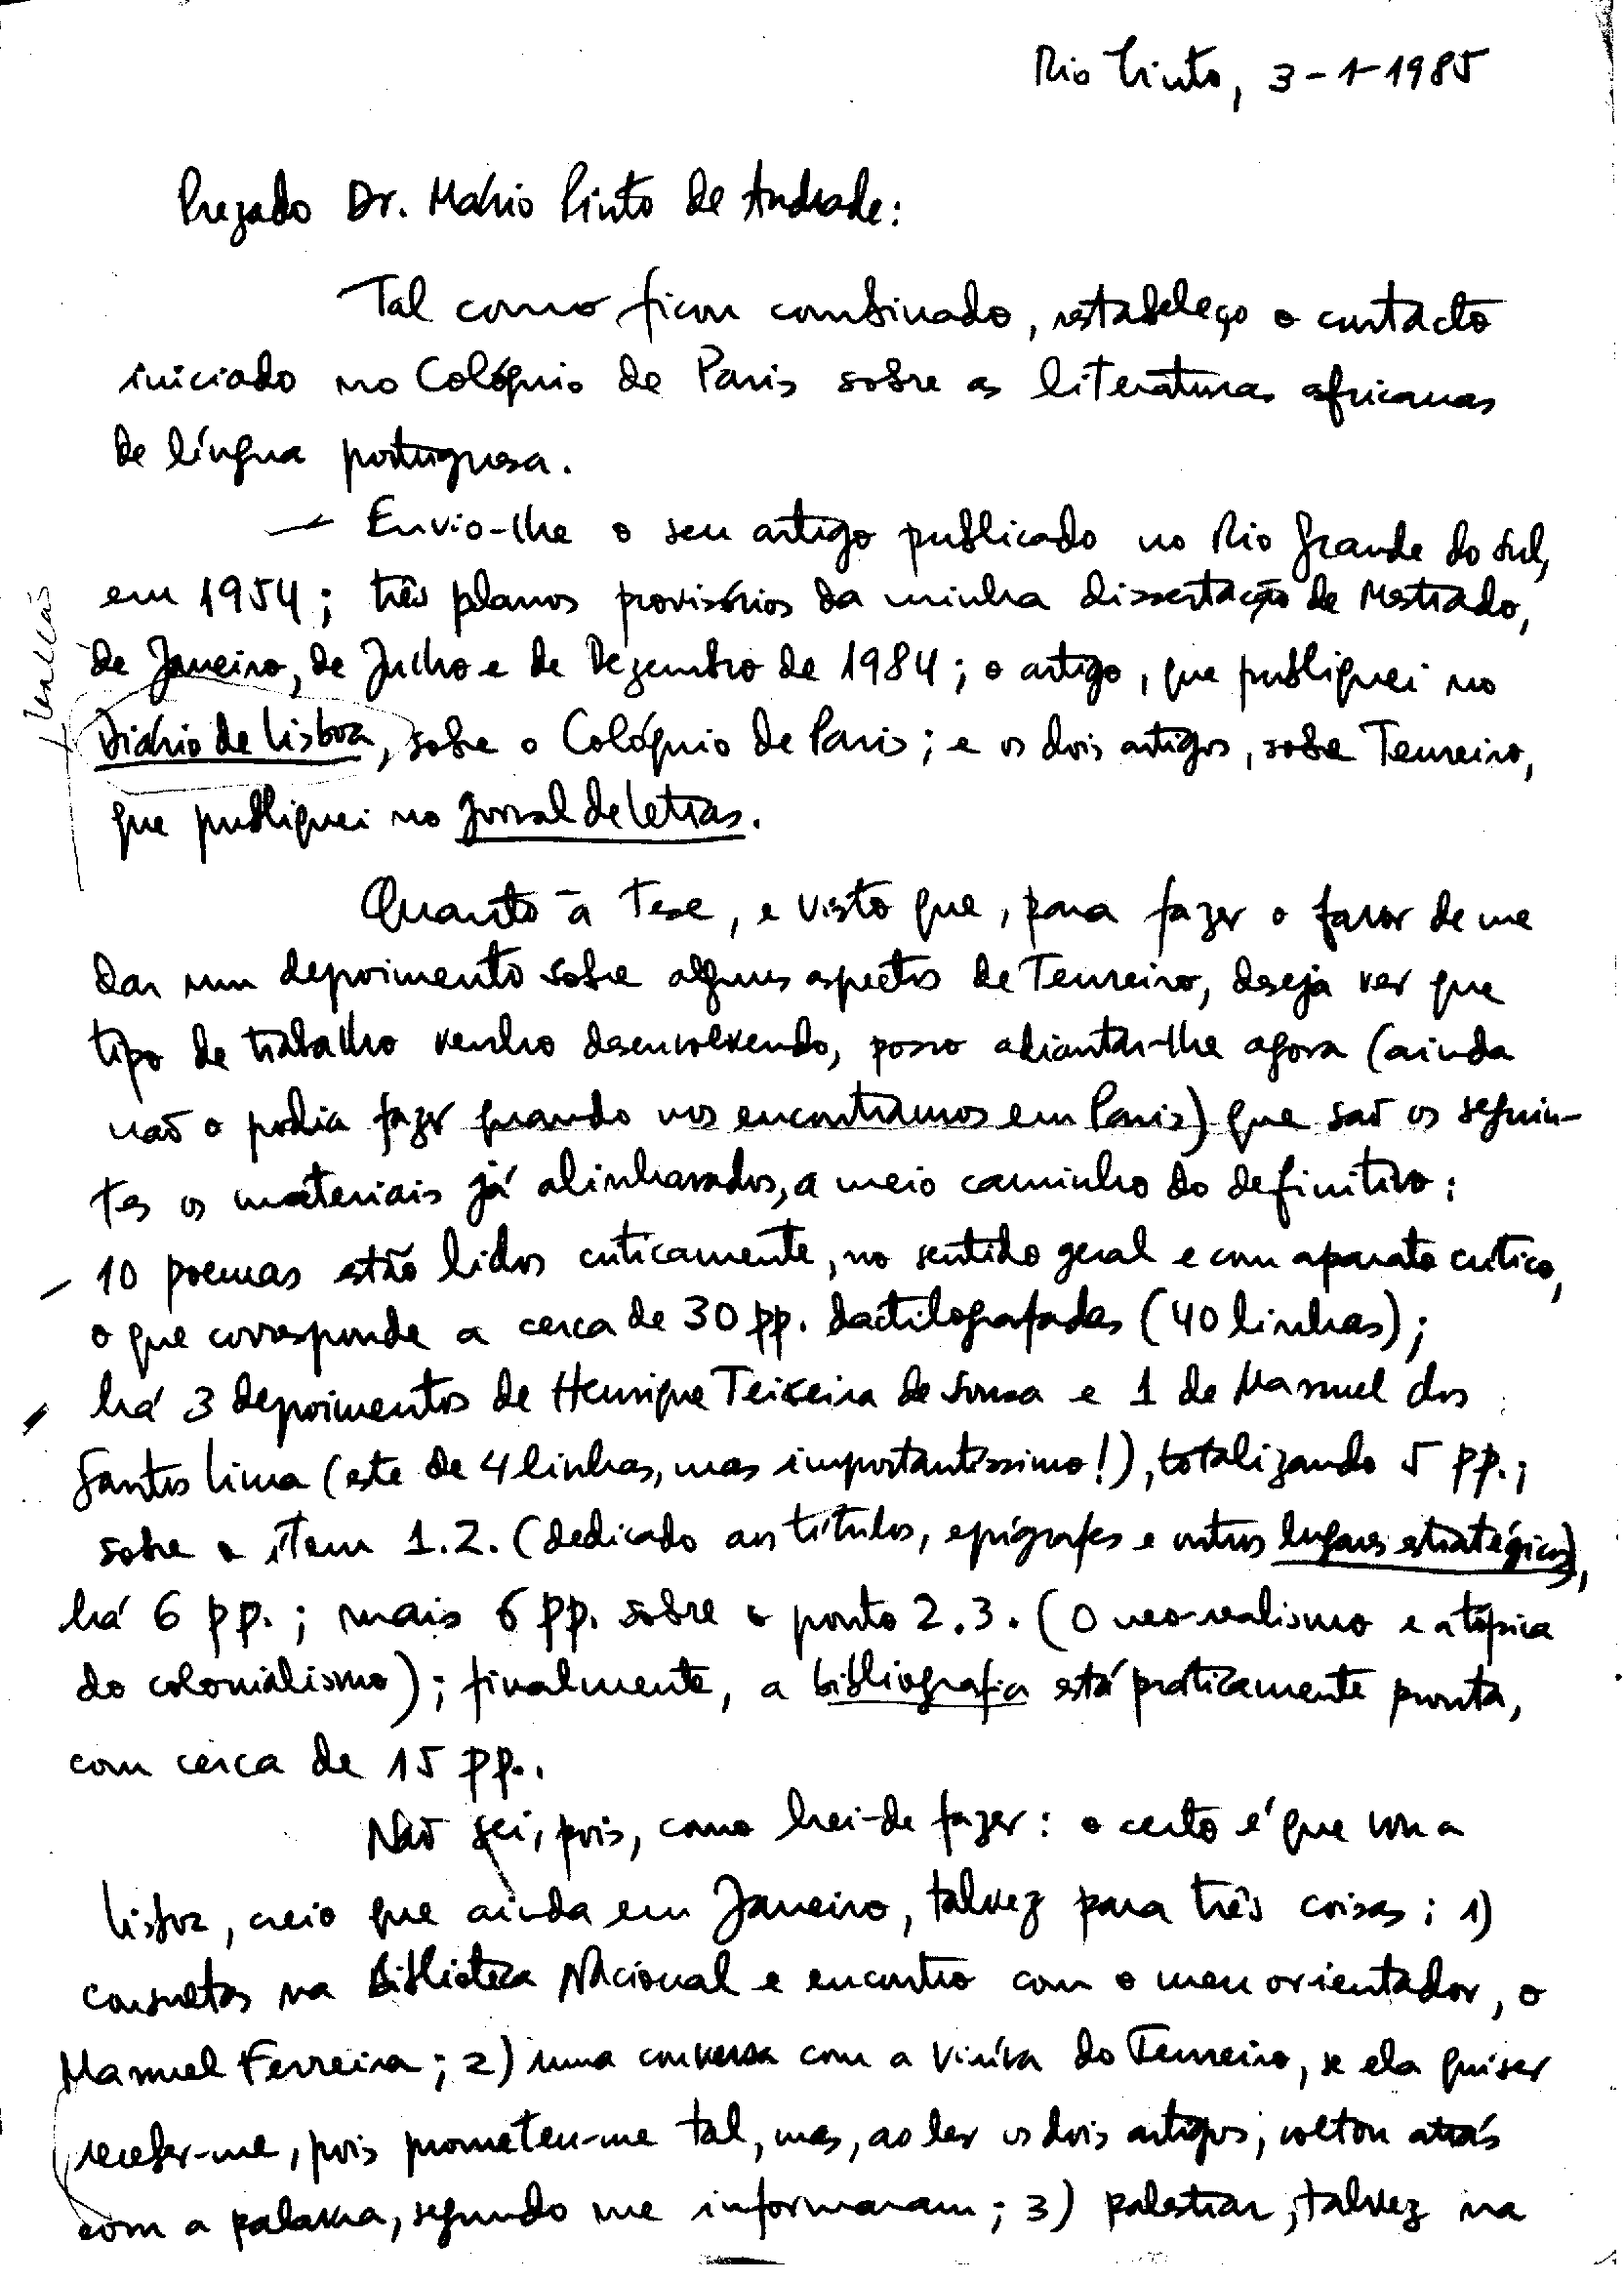 Rio Tinto, 3-1-1985
Prezado Dr. Mário Pinto de Andrade:
Tal como ficou combinado, restabeleço o contacto
iniciado no Colóquio de Paris sobre as literaturas africanas
de língua portuguesa.
— Envio-lhe o seu artigo publicado no Rio Grande do Sul,
em 1954; três planos provisórios da minha dissertação de Mestrado,
de Janeiro, de Julho e de Dezembro de 1984; o artigo, que publiquei no
Diário de Lisboa, sobre o Colóquio de Paris; e os dois artigos, sobre Tenreiro,
que publiquei no Jornal de Letras.
Quanto à Tese, e visto que, para fazer o favor de me
dar um depoimento sobre alguns aspectos de Tenreiro, deseja ver que
tipo de trabalho venho desenvolvendo, posso adiantar-lhe agora (ainda
não o podia fazer quando nos encontramos em Paris) que são os seguin-
tes os materiais já alinhavados, a meio caminho do definitivo:
- 10 poemas estão lidos criticamente, no sentido geral e com aparato crítico,
o que corresponde a cerca de 30 pp. dactilografadas (40 linhas);
- há 3 depoimentos de Henrique Teixeira de Sousa e 1 de Manuel dos
Santos Lima (este de 4 linhas, mas importantíssimo!), totalizando 5 pp.;
sobre o ítem 1.2. (dedicado aos títulos, epígrafes e outros lugares estratégicos),
há 6 pp.; mais 6 pp. sobre o ponto 2.3. (O neo-realismo e a tópica
do colonialismo); finalmente, a bibliografia está praticamente pronta,
com cerca de 15 pp..
Não sei, pois, como hei-de fazer: o certo é que vou a
Lisboa, creio que ainda em Janeiro, talvez para três coisas: 1)
consultas na Biblioteca Nacional e encontro com o meu orientador, o
Manuel Ferreira; 2) uma conversa com a viúva do Tenreiro, se ela quiser
receber-me, pois prometeu-me tal, mas, ao ler os dois artigos, voltou atrás
com a palavra, segundo me informaram; 3) palestrar, talvez na